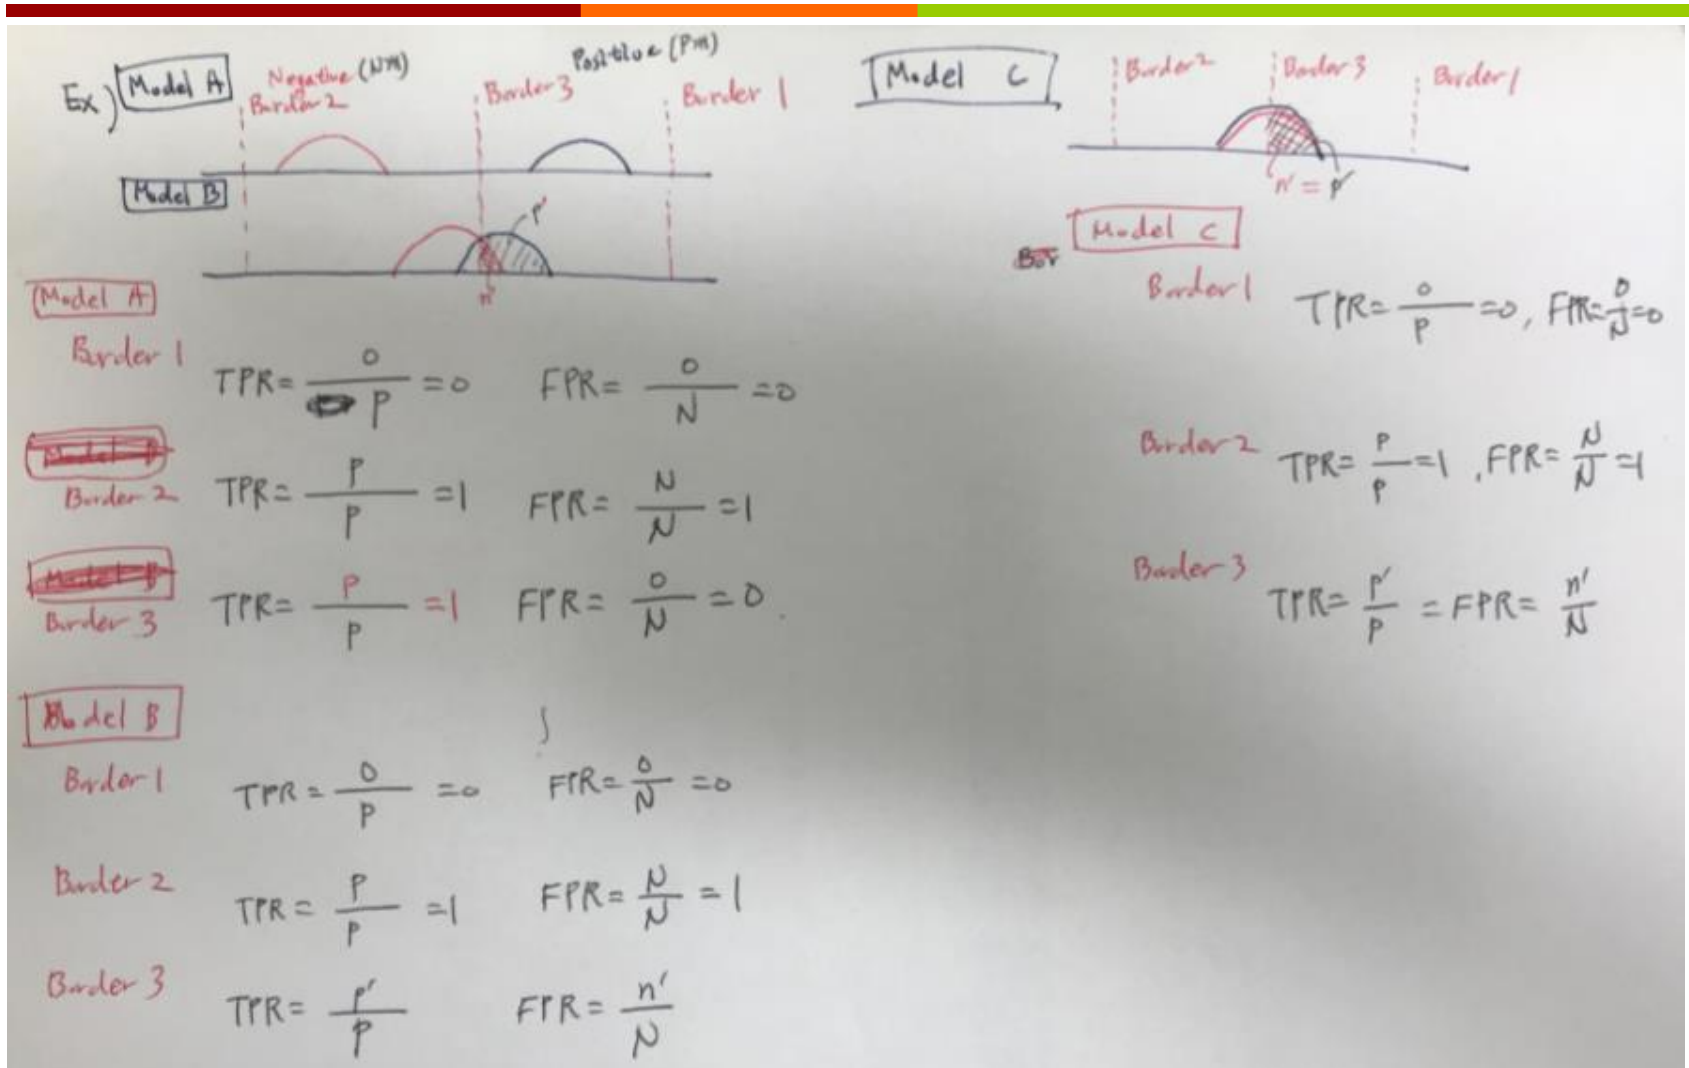 Ex) Model A
Negative (Nm)
Positive (Pm)
Border 2
Border 3
Border 1
Model B
p'
n'
Model A
Border 1
TPR = 0/P = 0 FPR = 0/N = 0
Border 2
TPR = P/P = 1 FPR = N/N = 1
Border 3
TPR = P/P = 1 FPR = 0/N = 0
Model B
Border 1
TPR = 0/P = 0 FPR = 0/N = 0
Border 2
TPR = P/P = 1 FPR = N/N = 1
Border 3
TPR = p'/P FPR = n'/N
Model C
Border 2
Border 3
Border 1
n' = p'
Model C
Border 1
TPR = 0/P = 0, FPR = 0/N = 0
Border 2
TPR = P/P = 1, FPR = N/N = 1
Border 3
TPR = p'/P = FPR = n'/N